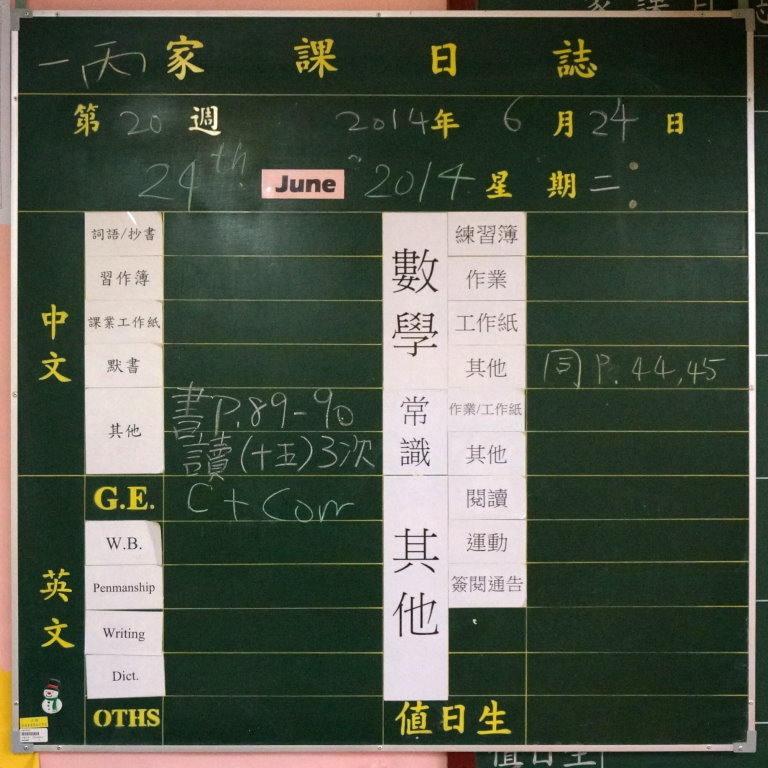 一丙 家課日誌
第 20 週 2014年 6 月 24 日
24th June 2014 星期二
中文
詞語/抄書
習作簿
課業工作紙
默書
其他 書P.89-90
讀(十五)3次
英文
G.E. C + Corr
W.B.
Penmanship
Writing
Dict.
OTHS
數學
練習簿
作業
工作紙
其他 同 P. 44,45
常識
作業/工作紙
其他
其他
閱讀
運動
簽閱通告
值日生
值日生